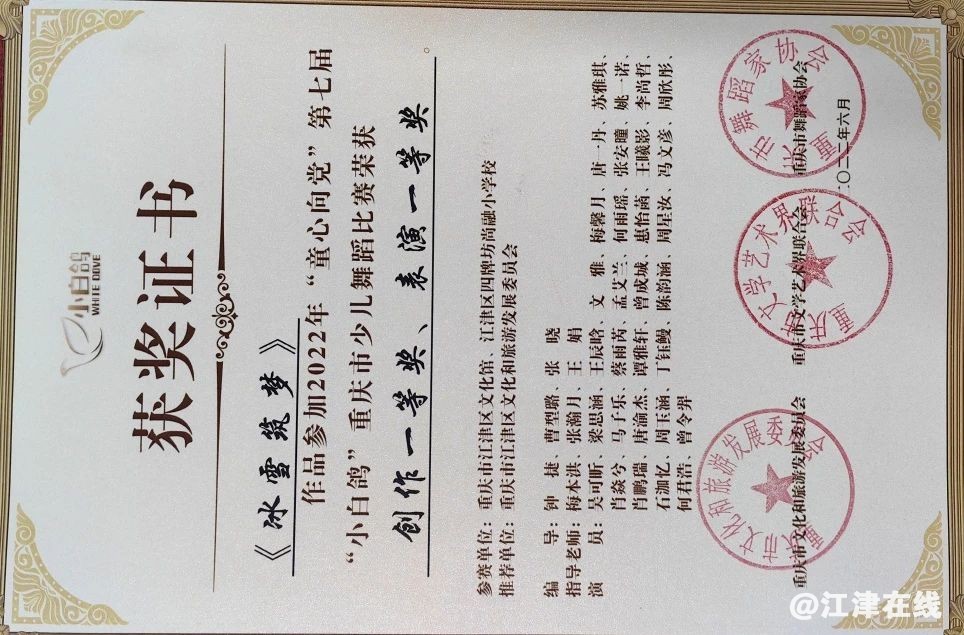 小白鸽
WHITE DOVE
获奖证书
《冰雪筑梦》
作品参加2022年“童心向党”第七届
“小白鸽”重庆市少儿舞蹈比赛荣获
创作一等奖、表演一等奖。
参赛单位：重庆市江津区文化馆、江津区四牌坊尚融小学校
推荐单位：重庆市江津区文化和旅游发展委员会
编 导：钟 捷、曹型璐、张 晓
指导老师：梅本洪、张瀚月、王 娟
演 员：吴可昕、梁思涵、王辰晗、文 雅、梅馨月、唐一丹、苏雅琪、
肖焱兮、马子乐、蔡雨芮、孟艾兰、何雨瑶、张安瞳、姚一诺、
肖鹏瑞、唐渝杰、谭雅轩、曾成城、惠怡菡、王曦影、李尚哲、
石洳忆、周玉涵、丁钰鳗、陈韵涵、周呈汝、冯文彦、周欣彤、
何君浩、曾令羿
重庆市文化和旅游发展委员会
重庆市文学艺术界联合会
重庆市舞蹈家协会
二〇二二年六月
@江津在线